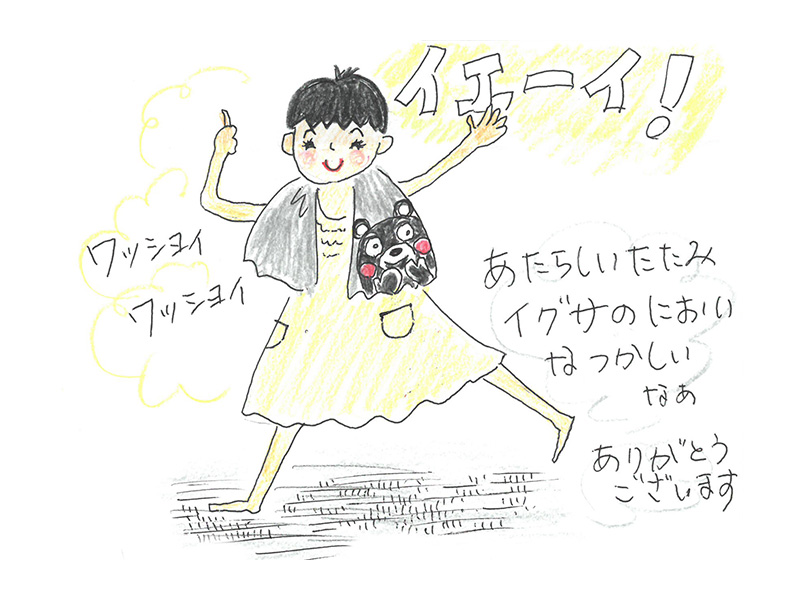 イエーイ!
ワッショイ
ワッショイ
あたらしいたたみ
イグサのにおい
なつかしい
なぁ
ありがとう
ございます